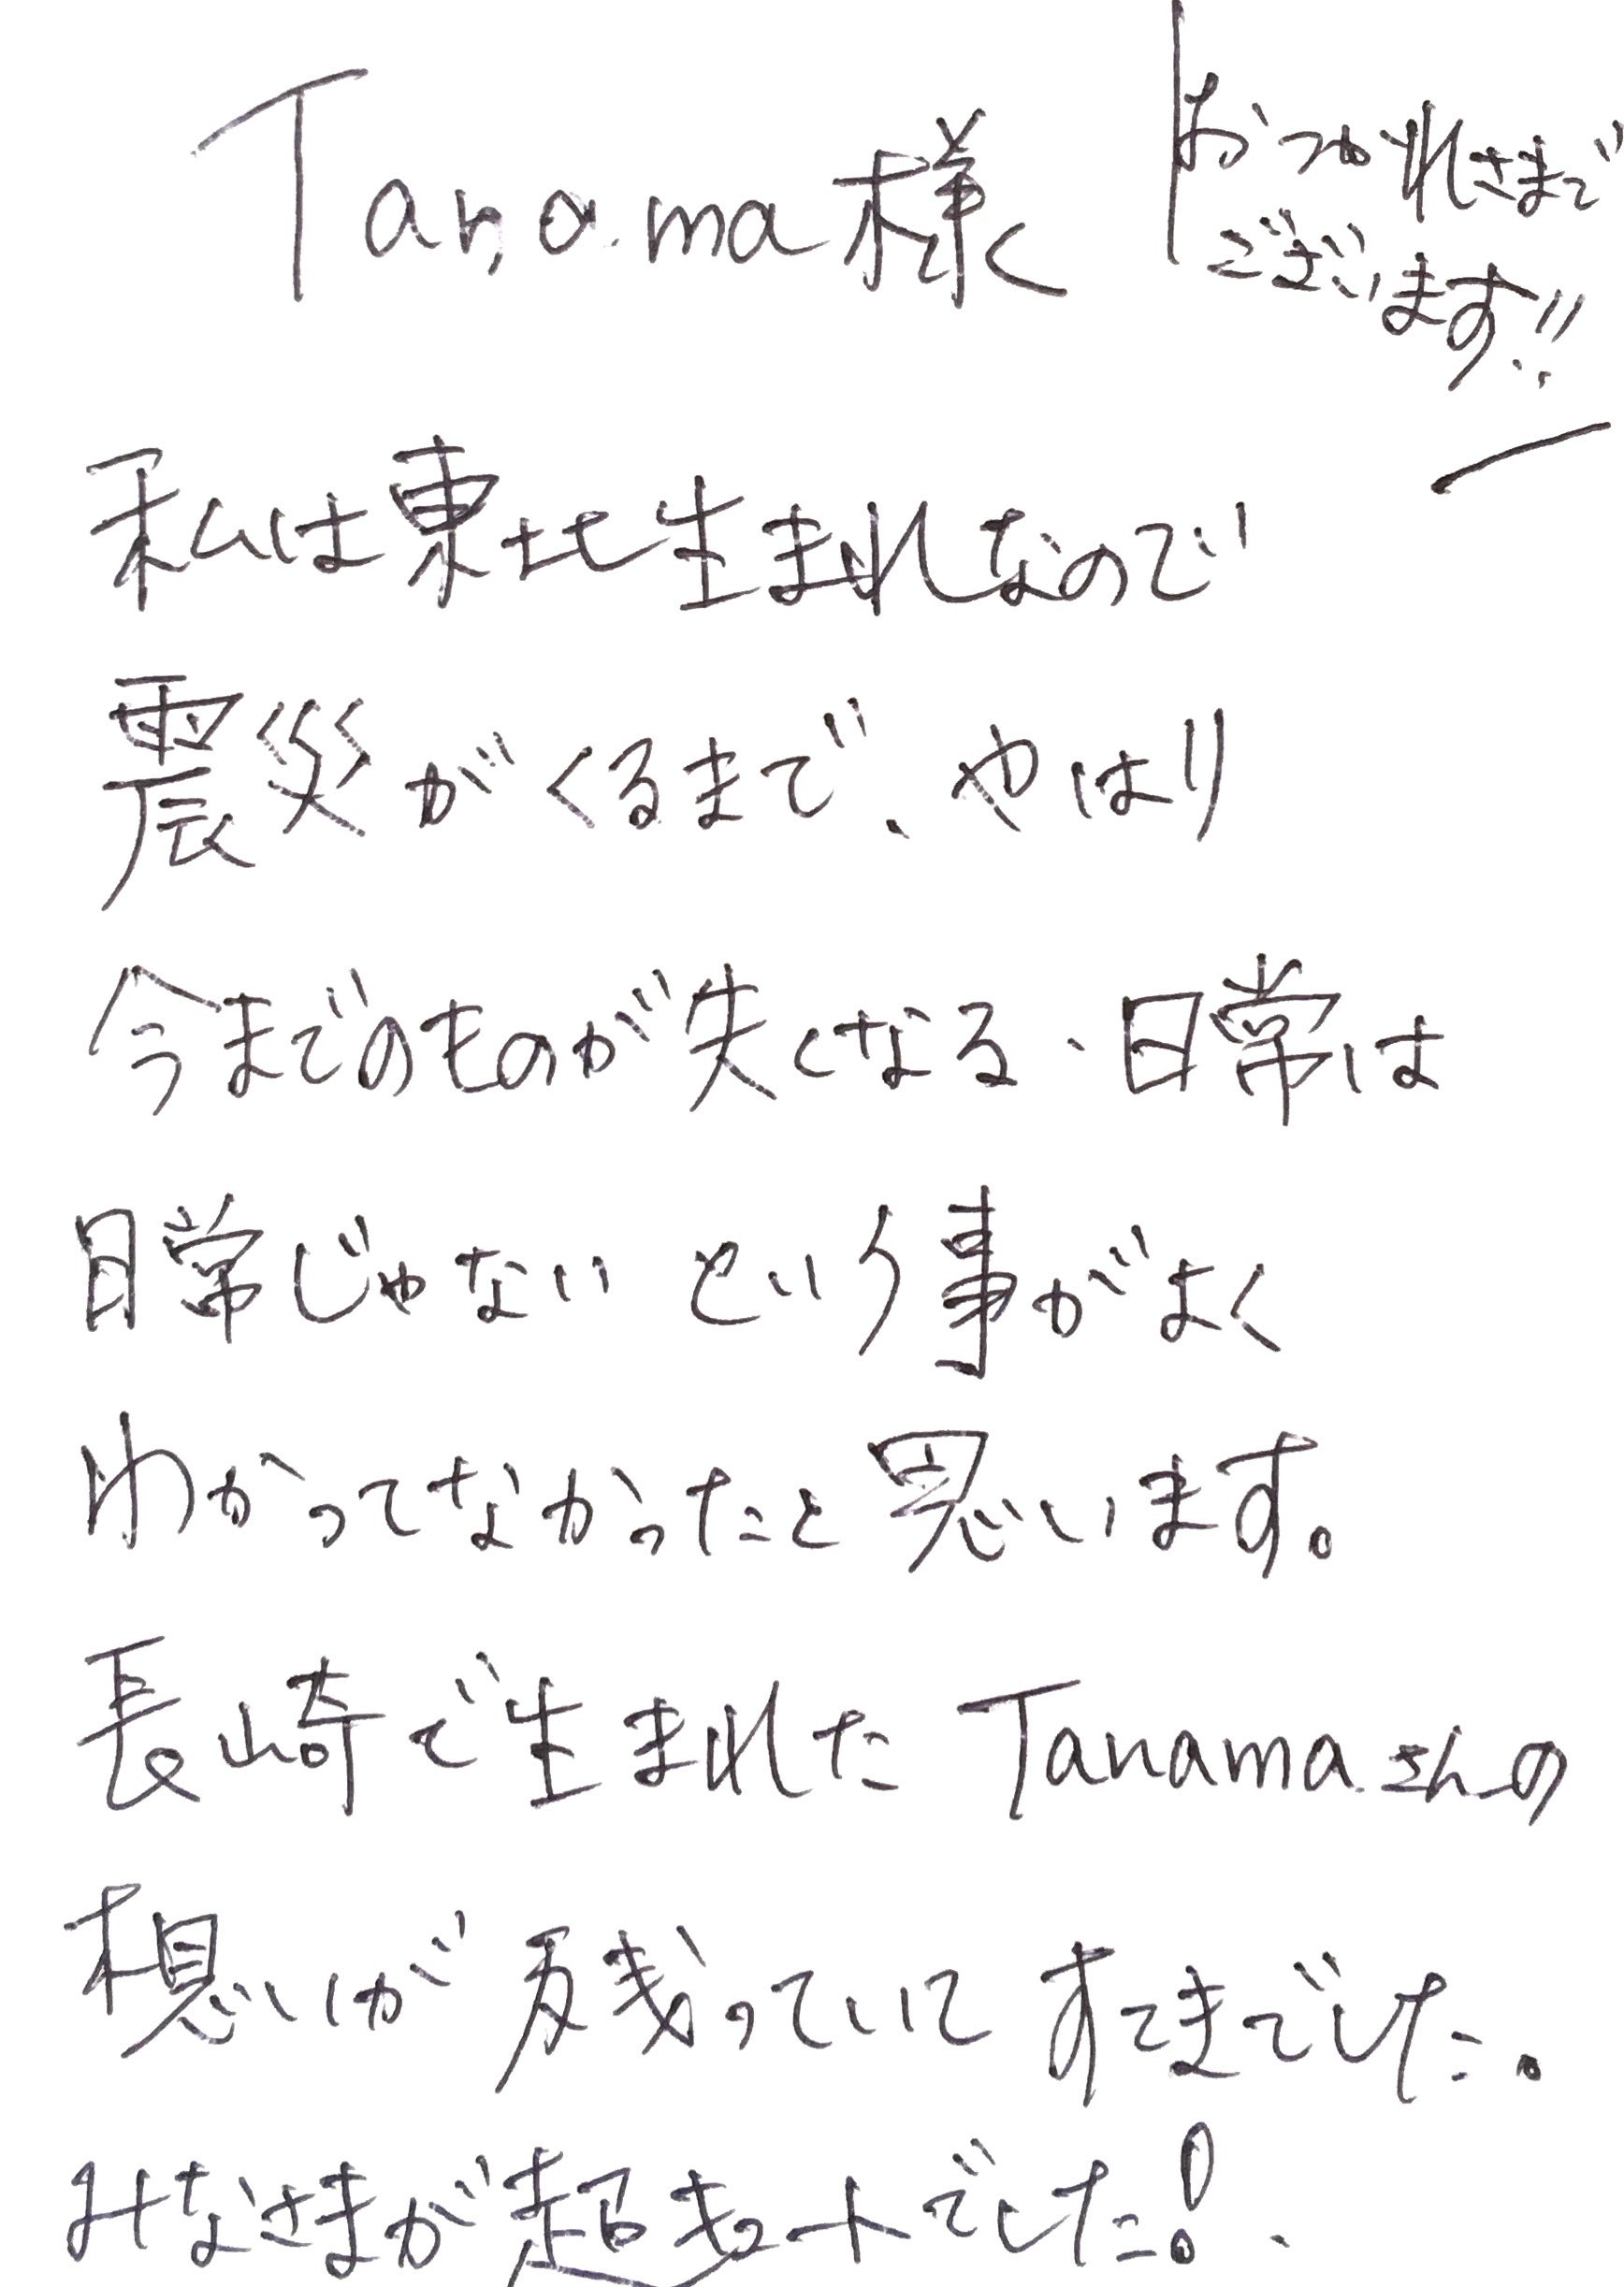 Tanama様
おつかれさまで
ございます!!
私は東北生まれなので
震災がくるまで、やはり
今までのものが失くなる、日常は
日常じゃないという事がよく
わかってなかったと思います。
長崎で生まれたTanamaさんの
想いが残っていて すてきでした。
みなさまが超キュートでした!